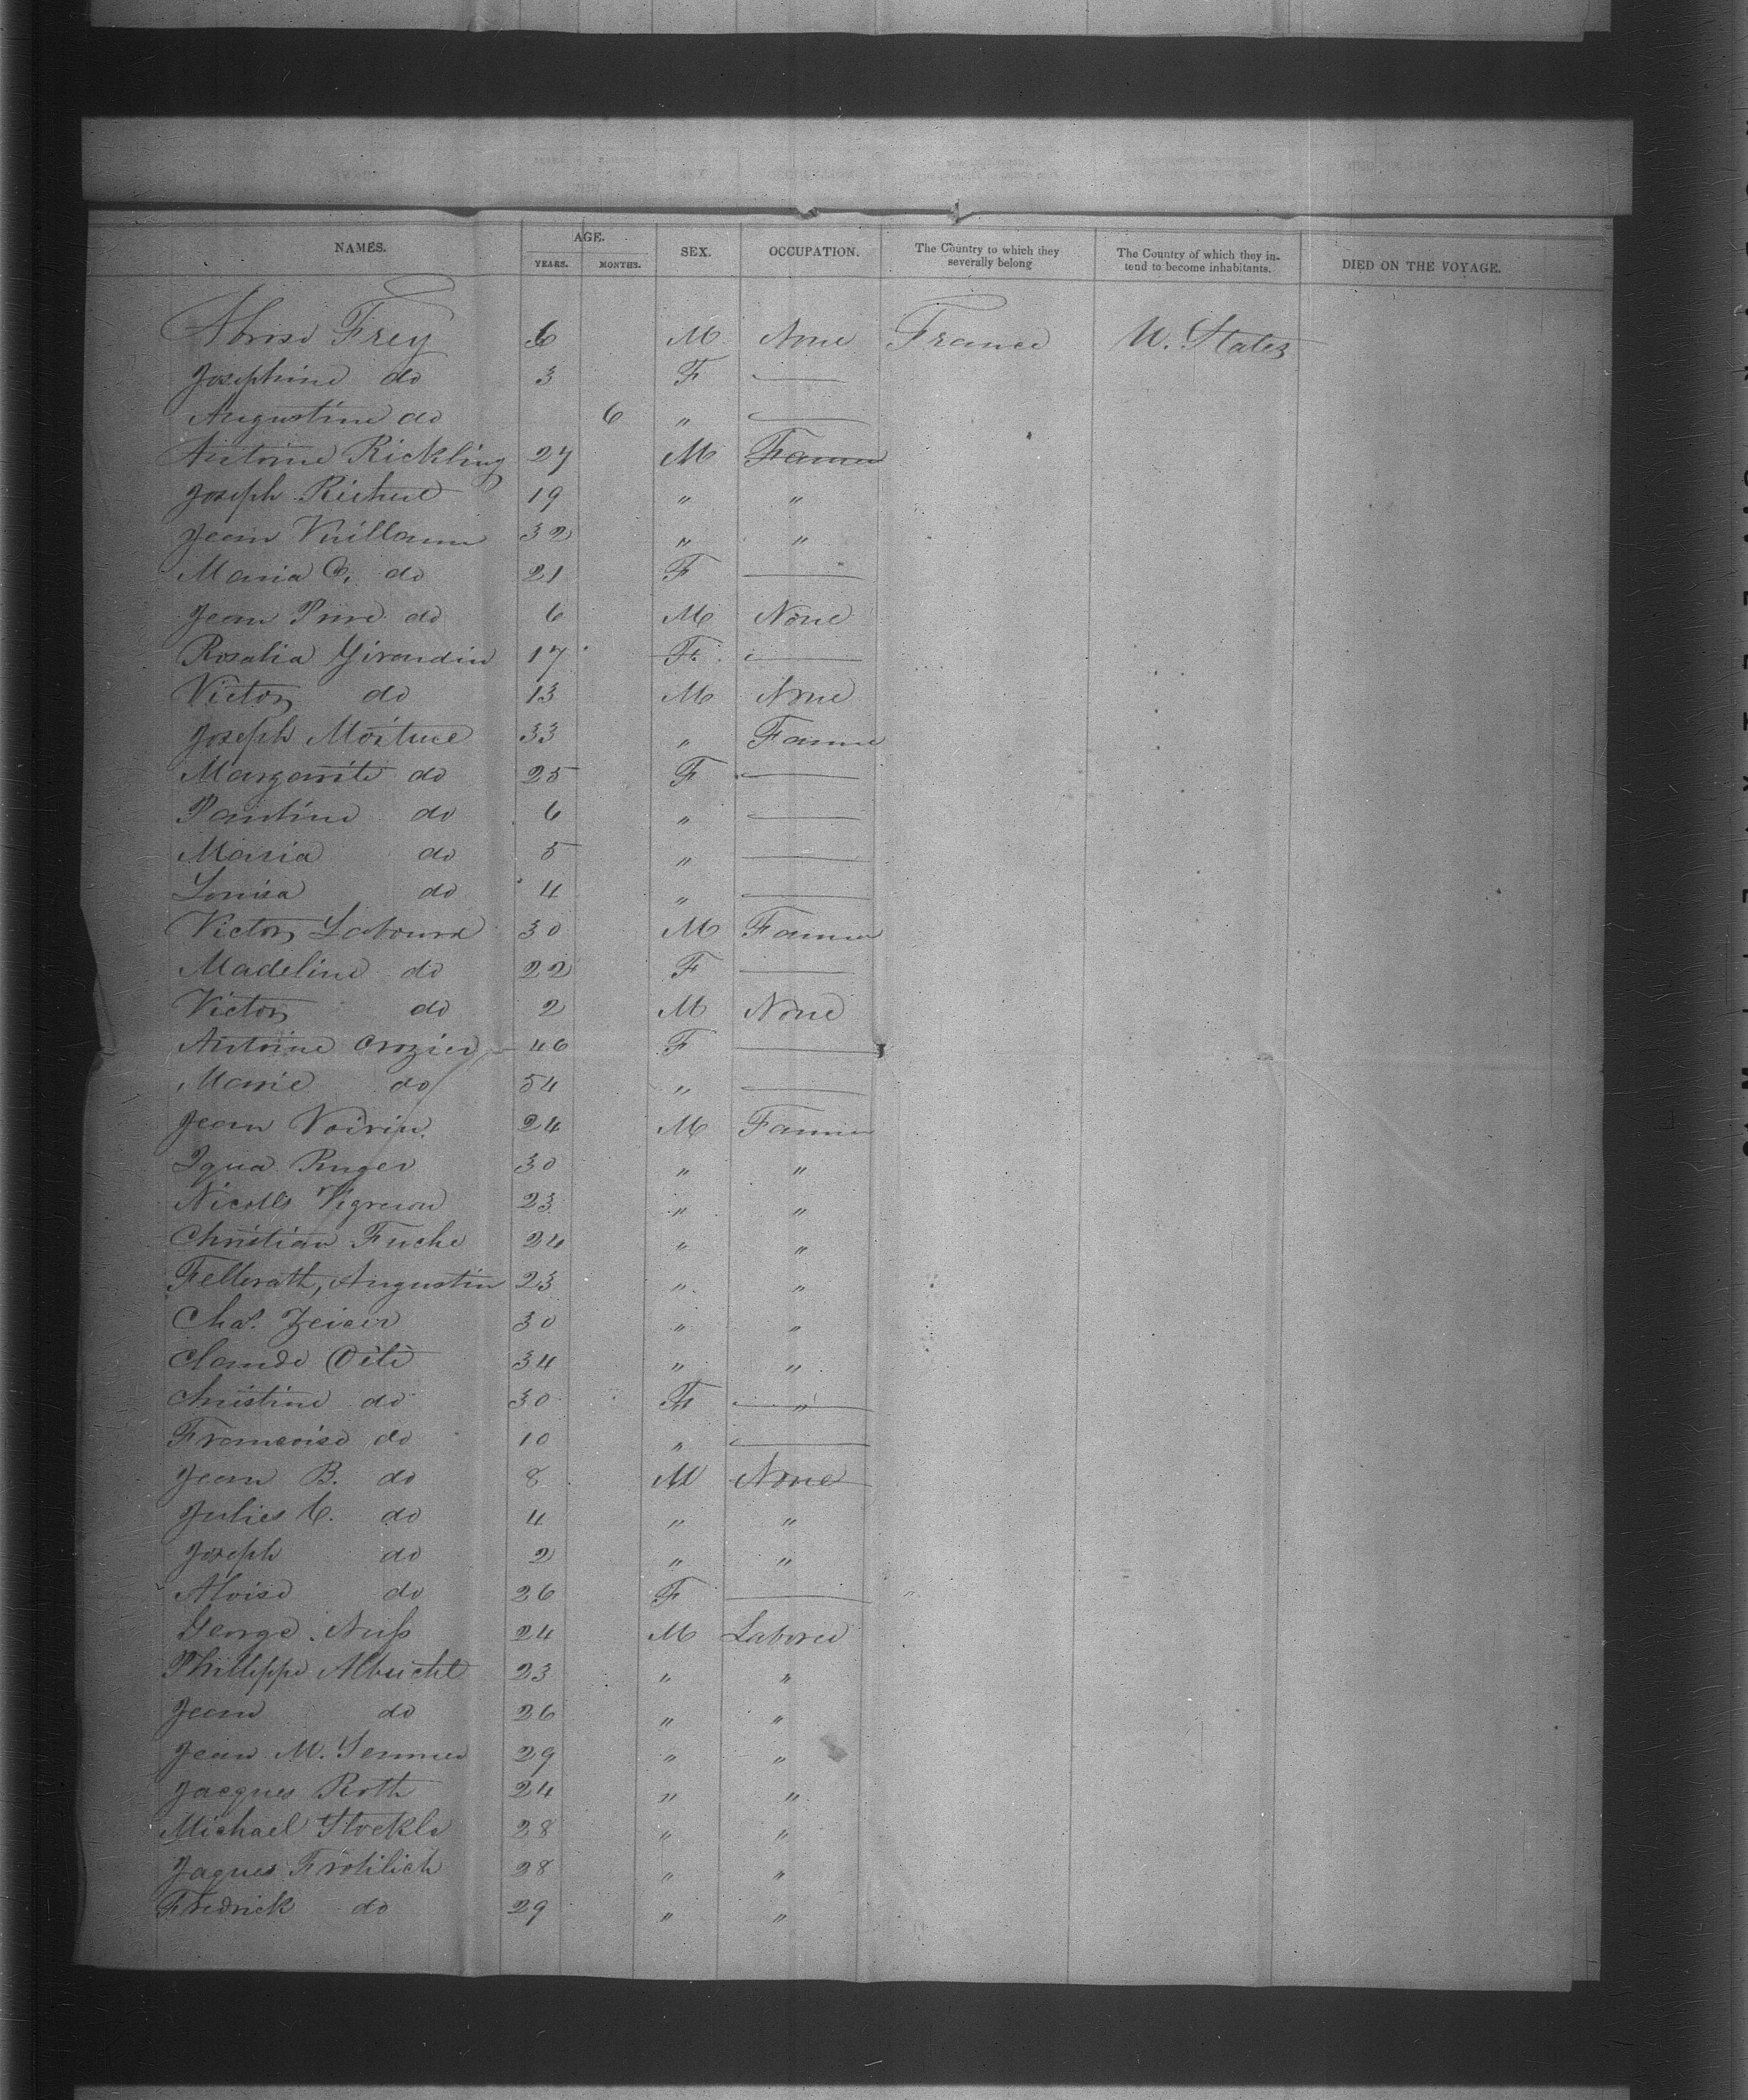 NAMES. AGE. SEX. OCCUPATION. The Country to which they severally belong The Country of which they intend to become inhabitants. DIED ON THE VOYAGE.
YEARS. MONTHS.
Aloise Frey 6 M None France U. States
Josephine do 3 F —
Augustine do 6 " —
Antoine Rickling 27 M Farmer
Joseph Richue 19 " "
Jean Vuillaume 32 " "
Maria C. do 21 F —
Jean Pierre do 6 M None
Rosalia Girondin 17 F —
Victor do 13 M None
Joseph Mosture 33 " Farmer
Margarite do 25 F —
Pantine do 6 " —
Maria do 5 " —
Louisa do 4 " —
Victor Laboure 30 M Farmer
Madeline do 22 F —
Victor do 2 M None
Antoine Crozier 46 F —
Marie do 54 " —
Jean Voirin 24 M Farmer
Iqua Ruger 30 " "
Nicolls Vigreron 23 " "
Christian Fuche 24 " "
Fellerath, Augustin 23 " "
Chas. Zeiser 30 " "
Claude Oété 34 " "
Christine do 30 F —
Francoise do 10 " —
Jean B. do 8 M None
Julies C. do 4 " "
Joseph do 2 " "
Aloise do 26 F —
George Nuss 24 M Laborer
Phillippe Albucht 23 " "
Jean do 26 " "
Jean M. Semmer 29 " "
Jacques Roth 24 " "
Michael Stockle 28 " "
Jaques Frohlich 28 " "
Fredrick do 29 " "